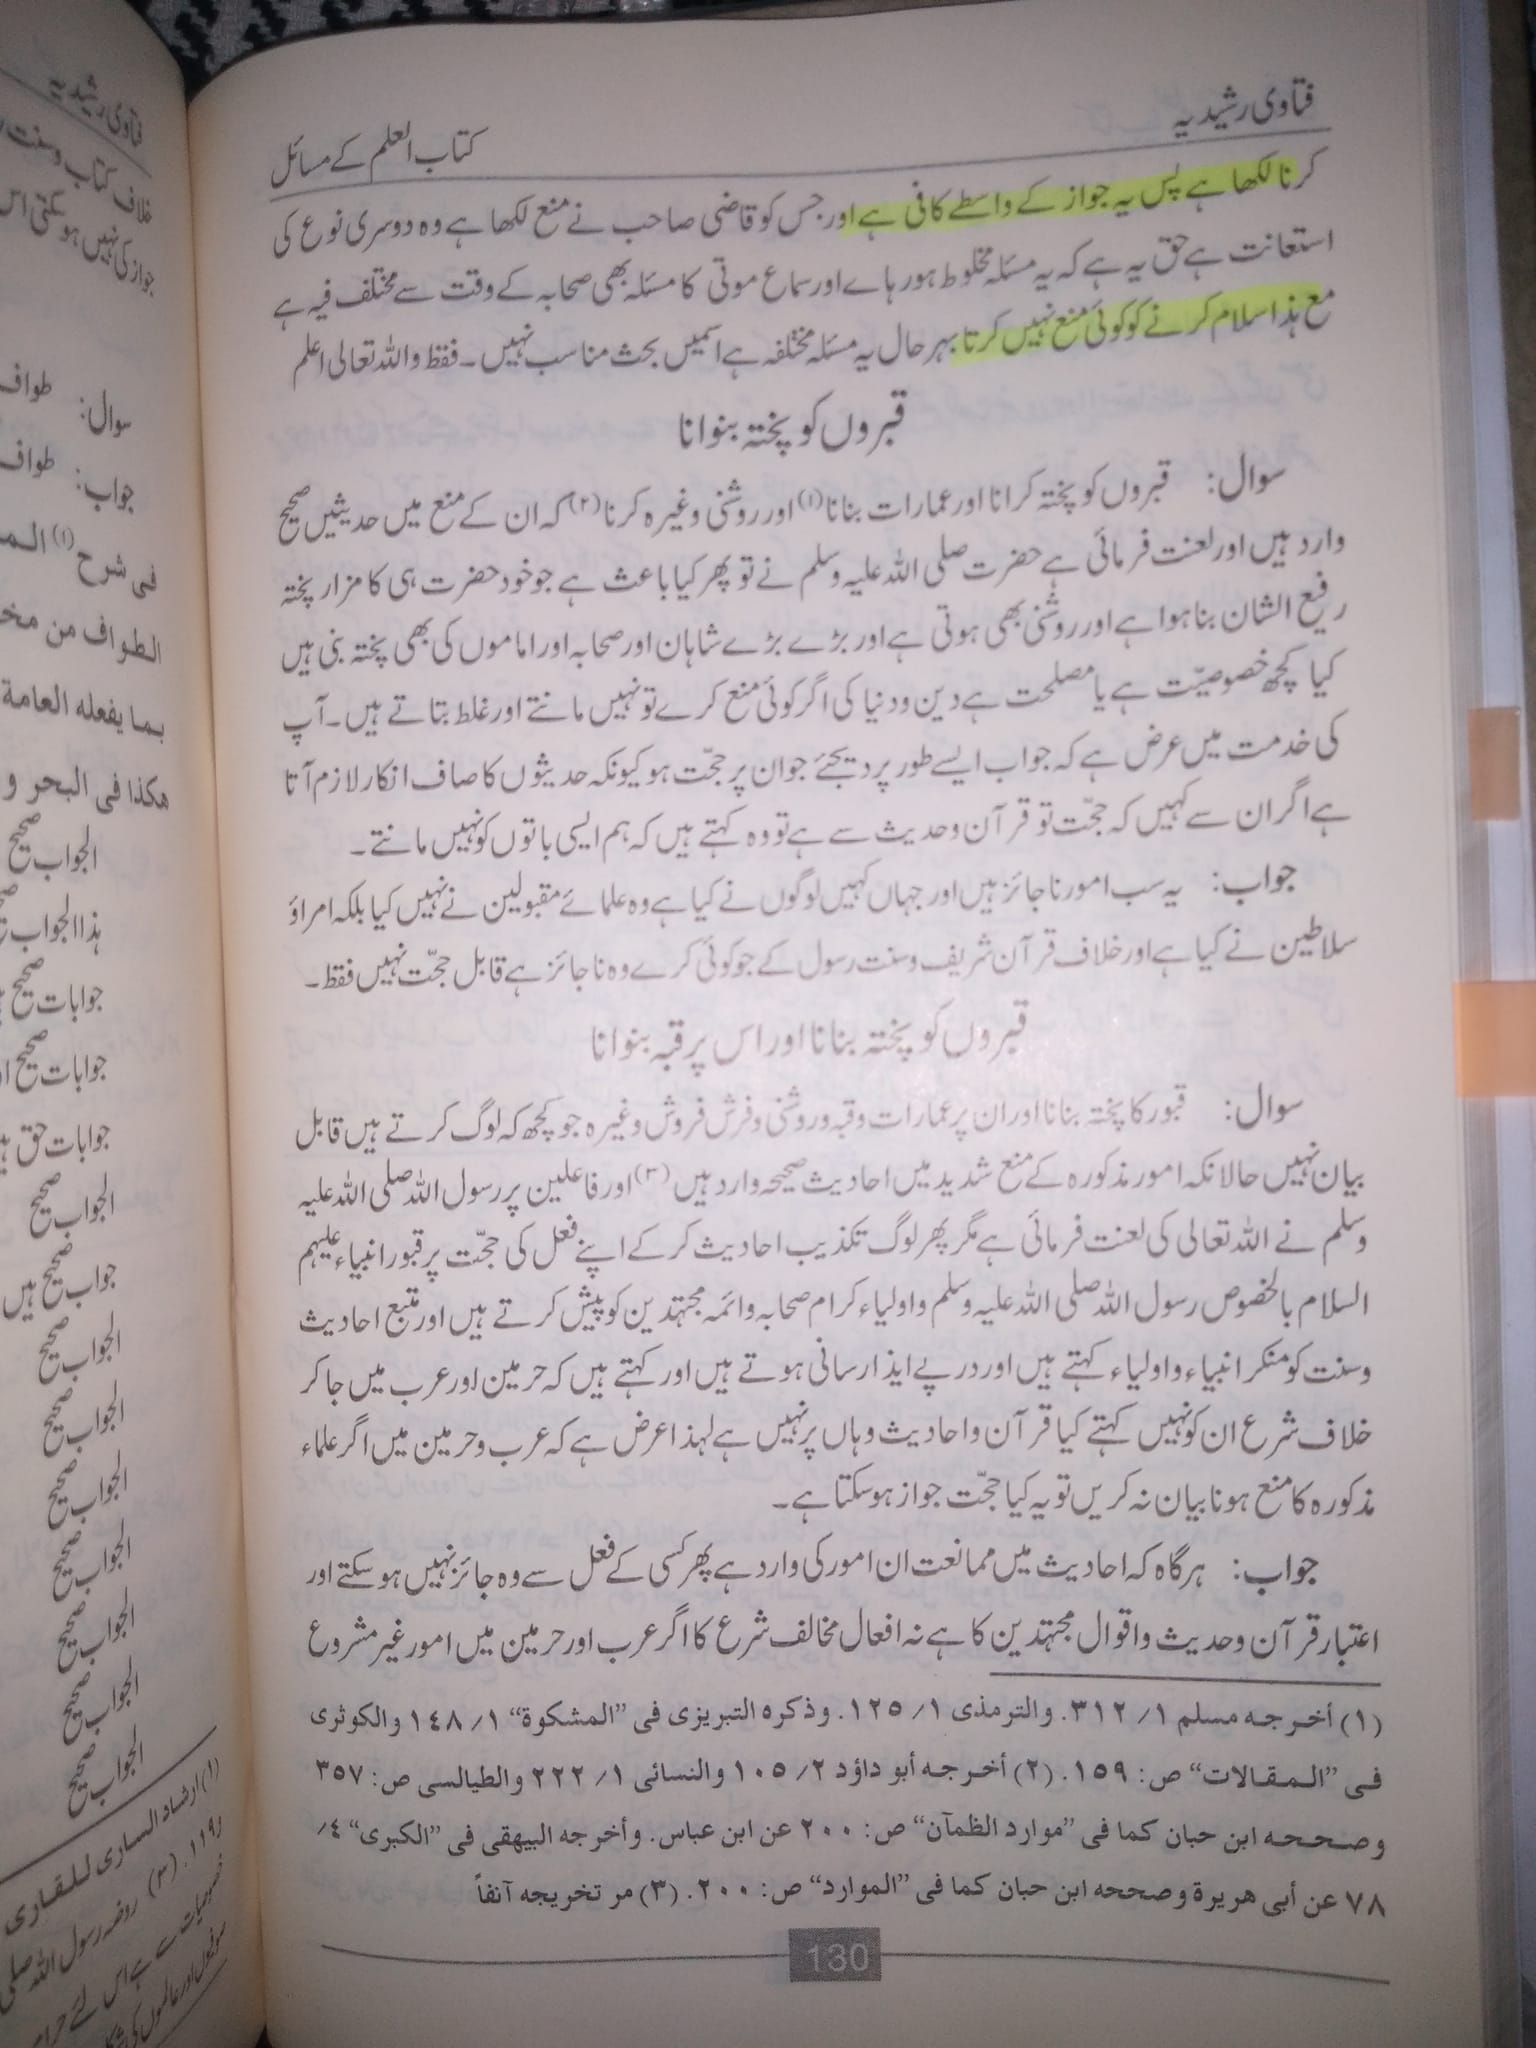 فتاوی رشیدیہ
کتاب العلم کے مسائل
کرنا لکھا ہے پس یہ جواز کے واسطے کافی ہے اور جس کو قاضی صاحب نے منع لکھا ہے وہ دوسری نوع کی
استعانت ہے حق یہ ہے کہ یہ مسئلہ مخلوط ہو رہا ہے اور سماع موتی کا مسئلہ بھی صحابہ کے وقت سے مختلف فیہ ہے
مع ہذا سلام کرنے کو کوئی منع نہیں کرتا بہر حال یہ مسئلہ مختلفہ ہے اسمیں بحث مناسب نہیں۔ فقط واللہ تعالی اعلم
قبروں کو پختہ بنوانا
سوال: قبروں کو پختہ کرانا اور عمارات بنانا (۱) اور روشنی وغیرہ کرنا (۲) کہ ان کے منع میں حدیثیں صحیح
وارد ہیں اور لعنت فرمائی ہے حضرت صلی اللہ علیہ وسلم نے تو پھر کیا باعث ہے جو خود حضرت ہی کا مزار پختہ
رفیع الشان بنا ہوا ہے اور روشنی بھی ہوتی ہے اور بڑے بڑے شاہان اور صحابہ اور اماموں کی بھی پختہ بنی ہیں
کیا کچھ خصوصیّت ہے یا مصلحت ہے دین ودنیا کی اگر کوئی منع کرے تو نہیں مانتے اور غلط بتاتے ہیں۔ آپ
کی خدمت میں عرض ہے کہ جواب ایسے طور پر دیجئے جو ان پر حجّت ہو کیونکہ حدیثوں کا صاف انکار لازم آتا
ہے اگر ان سے کہیں کہ حجّت تو قرآن وحدیث سے ہے تو وہ کہتے ہیں کہ ہم ایسی باتوں کو نہیں مانتے۔
جواب: یہ سب امور ناجائز ہیں اور جہاں کہیں لوگوں نے کیا ہے وہ علمائے مقبولین نے نہیں کیا بلکہ امراؤ
سلاطین نے کیا ہے اور خلاف قرآن شریف وسنت رسول کے جو کوئی کرے وہ ناجائز ہے قابل حجّت نہیں فقط۔
قبروں کو پختہ بنانا اور اس پر قبہ بنوانا
سوال: قبور کا پختہ بنانا اور ان پر عمارات وقبہ وروشنی وفرش فروش وغیرہ جو کچھ کہ لوگ کرتے ہیں قابل
بیان نہیں حالانکہ امور مذکورہ کے منع شدید میں احادیث صحیحہ وارد ہیں (۳) اور فاعلین پر رسول اللہ صلی اللہ علیہ
وسلم نے اللہ تعالی کی لعنت فرمائی ہے مگر پھر لوگ تکذیب احادیث کر کے اپنے فعل کی حجّت پر قبور انبیاء علیہم
السلام بالخصوص رسول اللہ صلی اللہ علیہ وسلم واولیاء کرام صحابہ وائمہ مجتہدین کو پیش کرتے ہیں اور متبع احادیث
وسنت کو منکر انبیاء واولیاء کہتے ہیں اور درپے ایذا رسانی ہوتے ہیں اور کہتے ہیں کہ حرمین اور عرب میں جا کر
خلاف شرع ان کو نہیں کہتے کیا قرآن واحادیث وہاں پر نہیں ہے لہذا عرض ہے کہ عرب وحرمین میں اگر علماء
مذکورہ کا منع ہونا بیان نہ کریں تو یہ کیا حجّت جواز ہو سکتا ہے۔
جواب: ہر گاہ کہ احادیث میں ممانعت ان امور کی وارد ہے پھر کسی کے فعل سے وہ جائز نہیں ہو سکتے اور
اعتبار قرآن وحدیث واقوال مجتہدین کا ہے نہ افعال مخالف شرع کا اگر عرب اور حرمین میں امور غیر مشروع
(١) أخرجه مسلم ١/ ٣١٢. والترمذی ١/ ١٢٥. وذكره التبریزی فی ”المشکوة“ ١/ ١٤٨ والکوثری
فی ”المقالات“ ص: ١٥٩. (٢) أخرجه أبو داؤد ٢/ ١٠٥ والنسائی ١/ ٢٢٢ والطیالسی ص: ٣٥٧
وصححه ابن حبان كما فی ”موارد الظمآن“ ص: ٢٠٠ عن ابن عباس. وأخرجه البیهقی فی ”الکبری“ ٤/
٧٨ عن أبی هریرة وصححه ابن حبان كما فی ”الموارد“ ص: ٢٠٠. (٣) مر تخریجه آنفاً
130
فتاوی رشیدیہ
خلاف کتاب وسنت
جواز کی نہیں ہو سکتی اس
سوال: طواف
جواب: طواف
فی شرح (١)
الطواف من
بما یفعله العامة
هكذا فی البحر و
الجواب صحیح
ہذا الجواب
جوابات صحیح
جوابات صحیح
جوابات حق
الجواب صحیح
جواب صحیح ہیں
الجواب صحیح
الجواب صحیح
الجواب صحیح
الجواب صحیح
الجواب صحیح
الجواب صحیح
الجواب صحیح
(١) ارشاد الساری للقاری
١١٩. (٢) روضہ رسول اللہ
خصوصیات سے ہے اس لئے